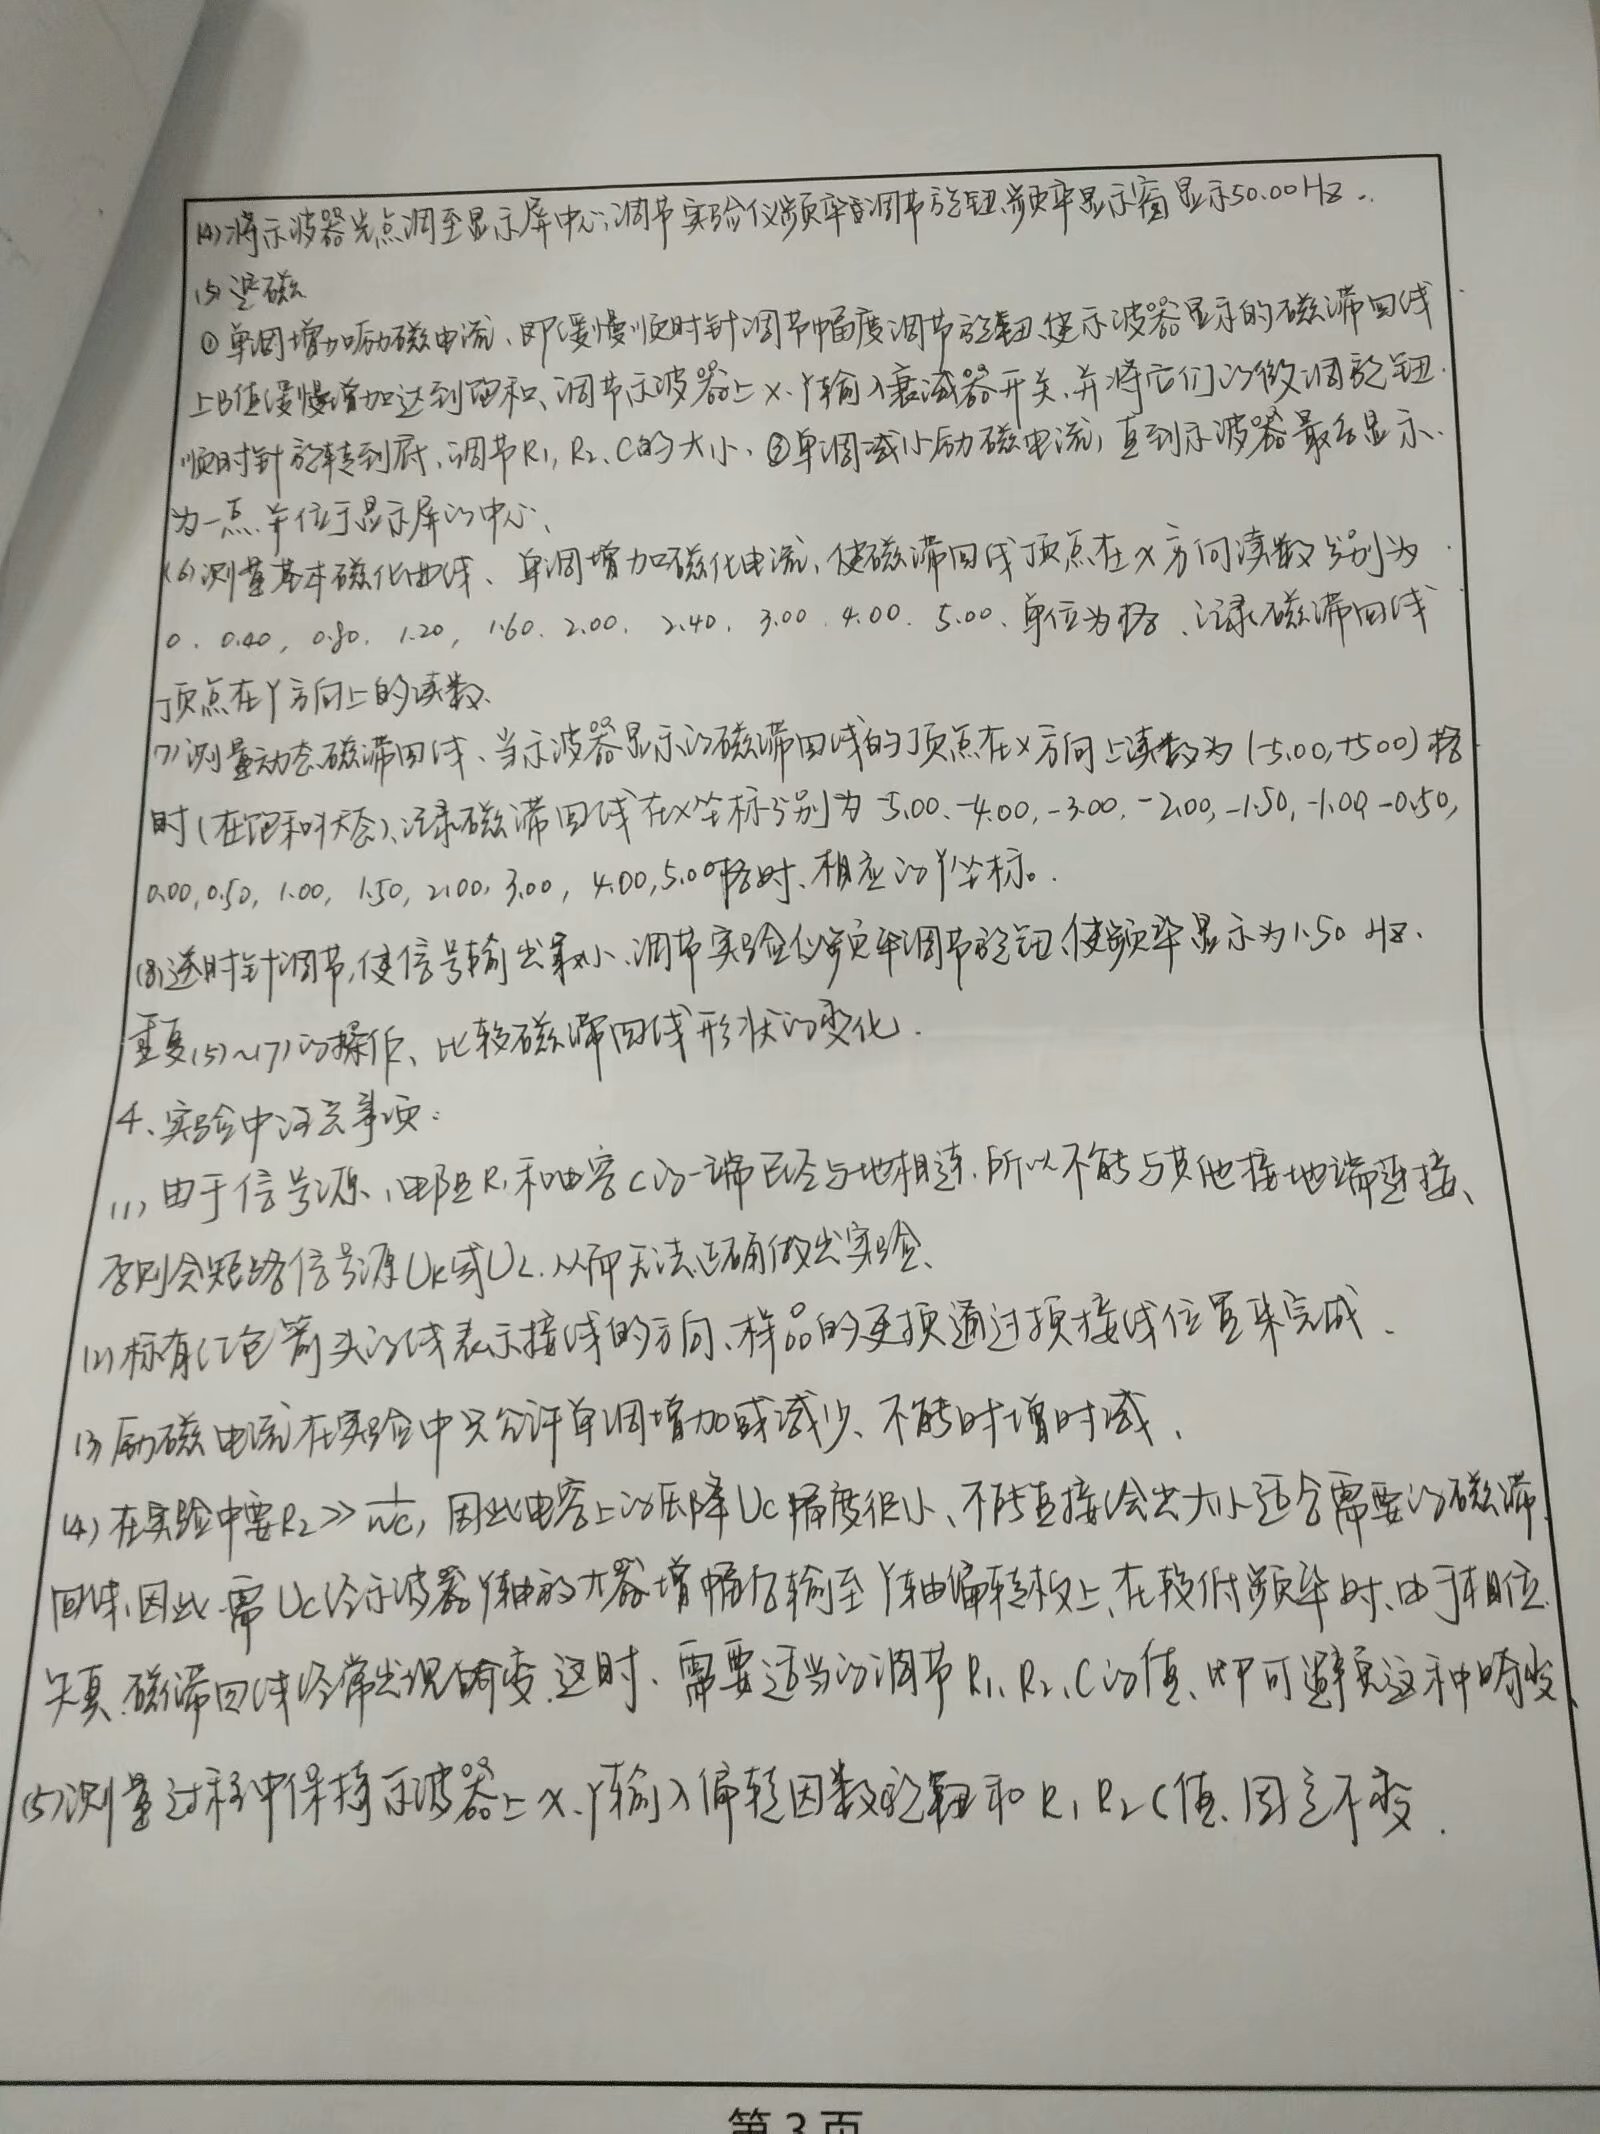 (4)将示波器光点调至显示屏中心,调节实验仪频率调节旋钮,频率显示窗显示50.00Hz.
(5)退磁
①单调增加励磁电流、即缓慢顺时针调节幅度调节旋钮、使示波器显示的磁滞回线
上B值缓慢增加达到饱和、调节示波器上X、Y输入衰减器开关、并将它们的微调旋钮
顺时针旋转到底、调节R1,R2、C的大小、②单调减小励磁电流,直到示波器最后显示
为一点、并位于显示屏的中心、
(6)测量基本磁化曲线、单调增加磁化电流,使磁滞回线顶点在X方向读数分别为
0、0.40,0.80、1.20,1.60、2.00、2.40、3.00、4.00、5.00、单位为格、记录磁滞回线
顶点在Y方向上的读数、
7)测量动态磁滞回线、当示波器显示的磁滞回线的顶点在X方向上读数为(-5.00,+5.00)格
时(在饱和状态)、记录磁滞回线在X坐标分别为-5.00、-4.00,-3.00,-2.00,-1.50,-1.00,-0.50,
0.00,0.50,1.00,1.50,2.00,3.00,4.00,5.00格时、相应的Y坐标。
(8)逆时针调节,使信号输出最小、调节实验仪频率调节旋钮,使频率显示为1.50 Hz、
重复(5)~(7)的操作、比较磁滞回线形状的变化.
4、实验中注意事项:
(1)由于信号源、电阻R1和电容C的一端已经与地相连、所以不能与其他接地端连接、
否则会短路信号源UR或UC、从而无法正确做出实验、
(2)标有红色箭头的线表示接线的方向、样品的更换通过换接线位置来完成、
(3)励磁电流在实验中只允许单调增加或减少、不能时增时减、
(4)在实验中要R2>>1/wC,因此电容上的压降Uc幅度很小、不能直接绘出大小适合需要的磁滞
回线、因此、需Uc经示波器Y轴放大器增幅后输至Y轴偏转板上、在较低频率时、由于相位
失真、磁滞回线经常出现畸变、这时、需要适当的调节R1、R2、C的值、即可避免这种畸变、
(5)测量过程中保持示波器上X、Y输入偏转因数旋钮和R1 R2 C值、固定不变.
第3页